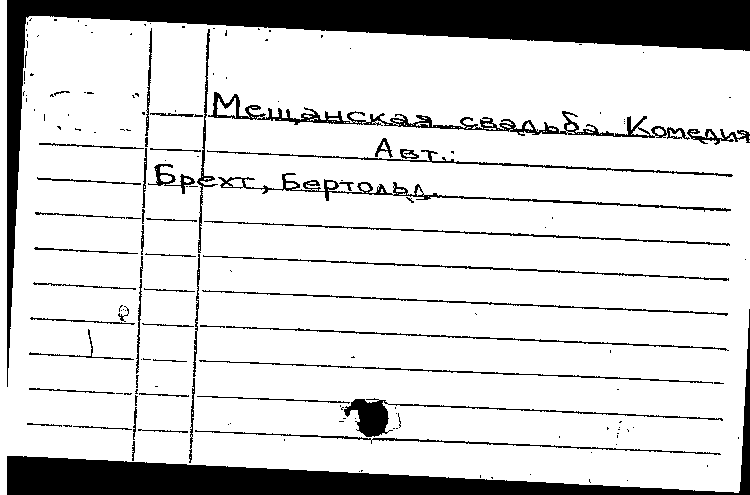 Мещанская свадьба. Комедия
Авт.:
Брехт, Бертольд.